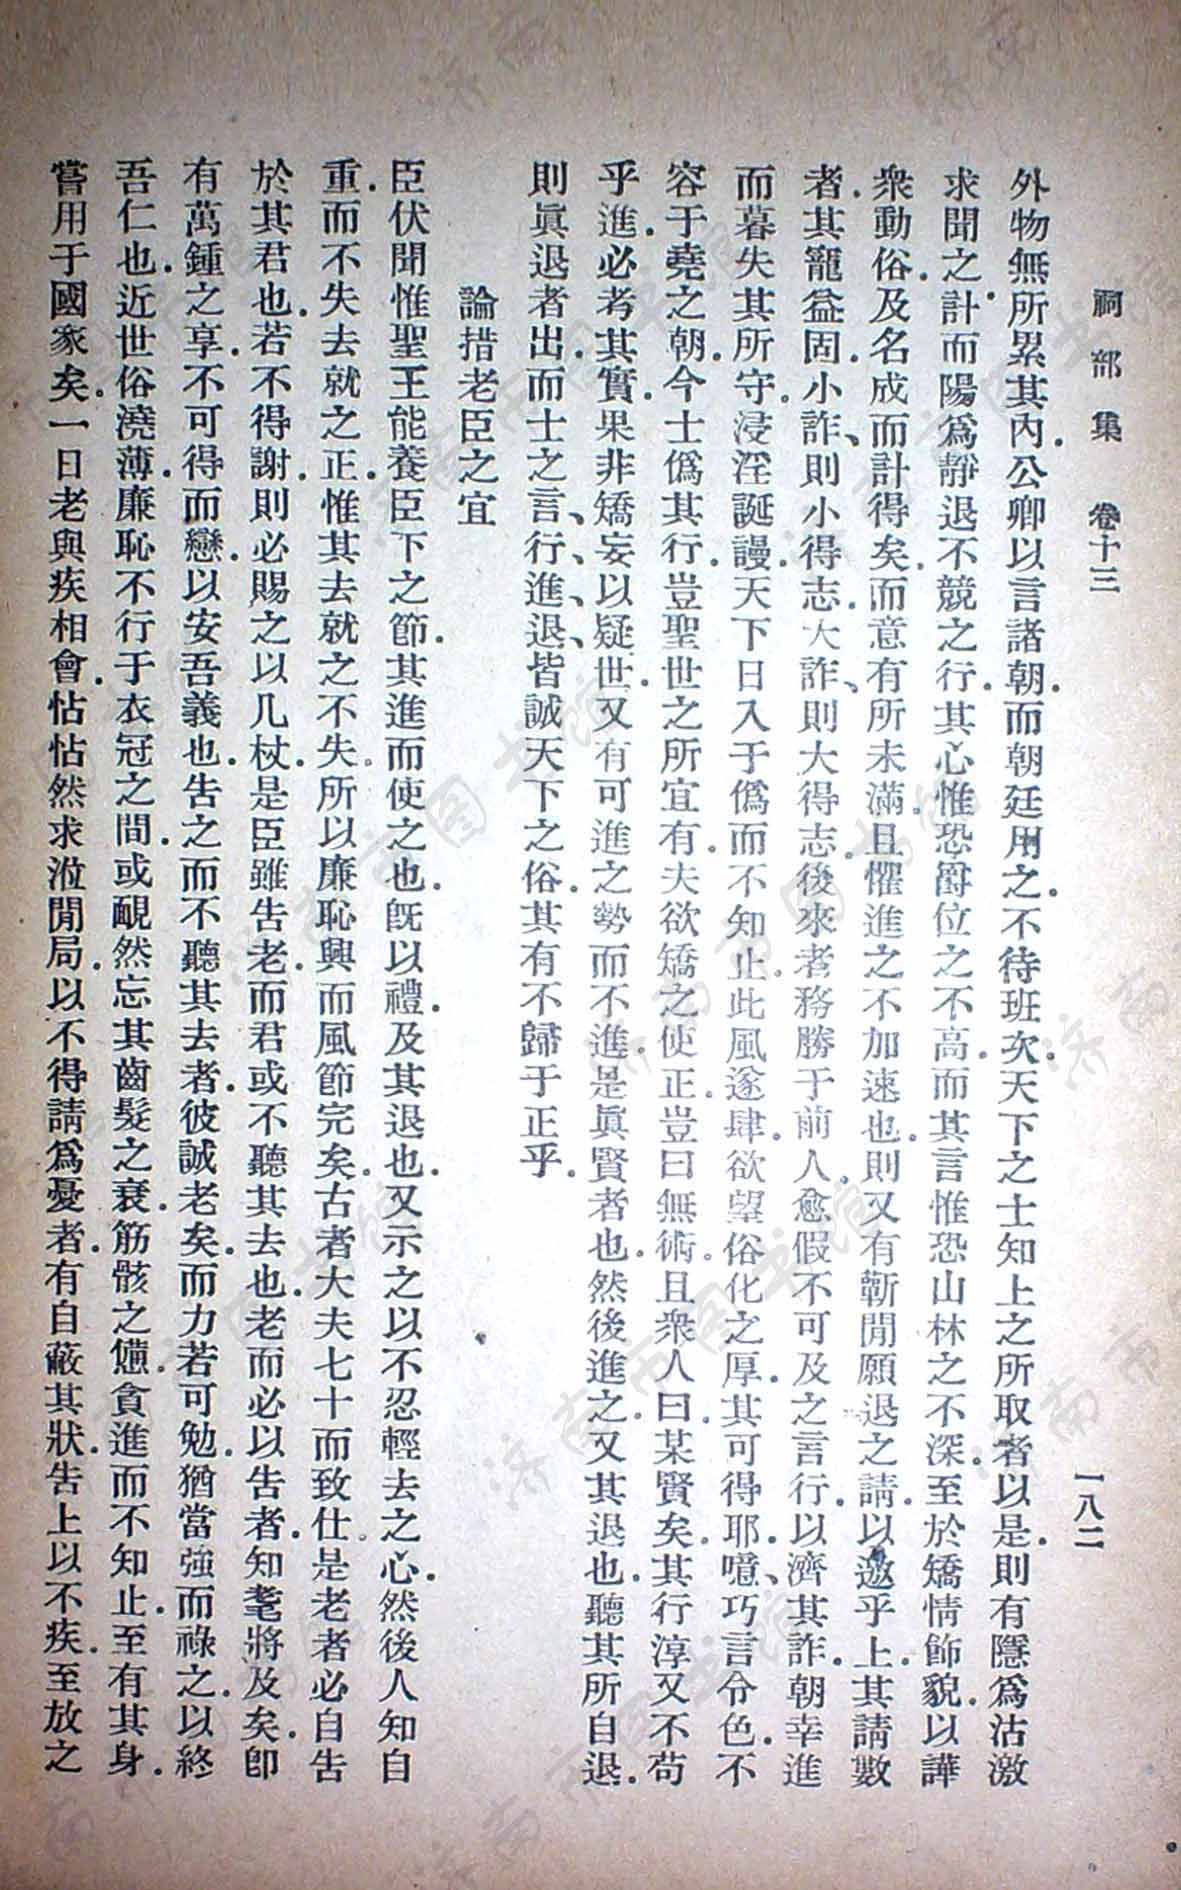 祠部集　卷十三　一八二
外物無所累其內．公卿以言諸朝．而朝廷用之．不待班次．天下之士知上之所取者以是．則有隱爲沽激
求聞之計．而陽爲靜退不競之行．其心惟恐爵位之不高．而其言惟恐山林之不深．至於矯情飾貌．以譁
衆動俗．及名成而計得矣．而意有所未滿．且懼進之不加速也．則又有蘄閒願退之請．以邀乎上．其請數
者．其寵益固．小詐、則小得志．大詐、則大得志．後來者務勝于前人．愈假不可及之言行．以濟其詐．朝幸進
而暮失其所守．浸淫誕謾．天下日入于僞而不知止．此風遂肆．欲望俗化之厚．其可得耶．噫、巧言令色．不
容于堯之朝．今士僞其行．豈聖世之所宜有．夫欲矯之使正．豈曰無術．且衆人曰．某賢矣．其行淳．又不苟
乎進．必考其實．果非矯妄以疑世．又有可進之勢而不進．是眞賢者也．然後進之．又其退也．聽其所自退．
則眞退者出．而士之言、行、進、退、皆誠．天下之俗．其有不歸于正乎．
論措老臣之宜
臣伏聞惟聖王能養臣下之節．其進而使之也．旣以禮．及其退也．又示之以不忍輕去之心．然後人知自
重．而不失去就之正．惟其去就之不失．所以廉恥興而風節完矣．古者大夫七十而致仕．是老者必自告
於其君也．若不得謝．則必賜之以几杖．是臣雖告老．而君或不聽其去也．老而必以告者．知耄將及矣．卽
有萬鍾之享．不可得而戀．以安吾義也．告之而不聽其去者．彼誠老矣．而力若可勉．猶當強而祿之．以終
吾仁也．近世俗澆薄．廉恥不行于衣冠之間．或靦然忘其齒髮之衰．筋骸之憊．貪進而不知止．至有其身．
嘗用于國家矣．一日老與疾相會．怙怙然求涖閒局．以不得請爲憂者．有自蔽其狀．告上以不疾．至放之